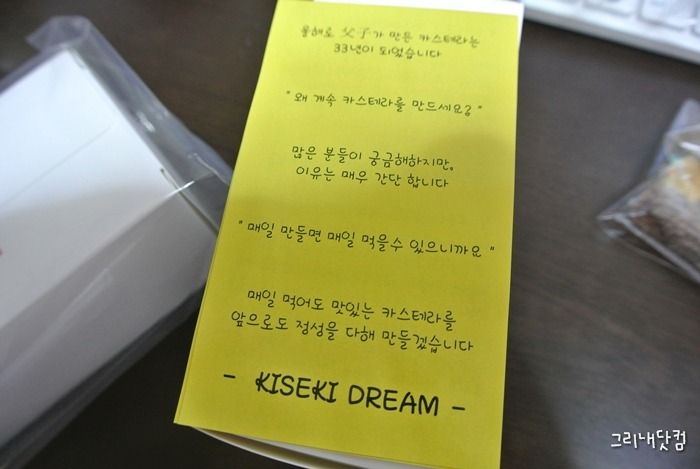 올해로 父子가 만든 카스테라는
33년이 되었습니다
" 왜 계속 카스테라를 만드세요? "
많은 분들이 궁금해하지만,
이유는 매우 간단 합니다
" 매일 만들면 매일 먹을수 있으니까요 "
매일 먹어도 맛있는 카스테라를
앞으로도 정성을 다해 만들겠습니다
- KISEKI DREAM -
그리내닷컴